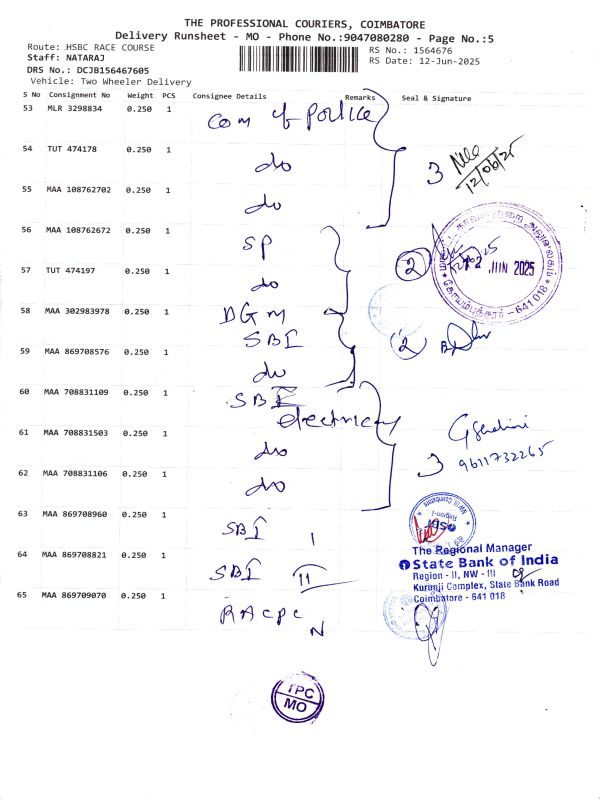 THE PROFESSIONAL COURIERS, COIMBATORE
Delivery Runsheet - MO - Phone No.:9047080280 - Page No.:5
Route: HSBC RACE COURSE
RS No.: 1564676
Staff: NATARAJ
RS Date: 12-Jun-2025
DRS No.: DCJB156467605
Vehicle: Two Wheeler Delivery
S No Consignment No Weight PCS Consignee Details Remarks Seal & Signature
53 MLR 3298834 0.250 1 Com of Police
54 TUT 474178 0.250 1 do 3
12/06/25
55 MAA 108762702 0.250 1 do
56 MAA 108762672 0.250 1 SP 2
12 JUN 2025
கோயம்புத்தூர் - 641 018
57 TUT 474197 0.250 1 do
58 MAA 302983978 0.250 1 DGM
SBI 2
59 MAA 869708576 0.250 1 do
60 MAA 708831109 0.250 1 SBI
electricity
61 MAA 708831503 0.250 1 do
9611732265
62 MAA 708831106 0.250 1 do 3
63 MAA 869708960 0.250 1 SBI I
64 MAA 869708821 0.250 1 SBI II
The Regional Manager
State Bank of India
Region - II, NW - III
Kurinji Complex, State Bank Road
Coimbatore - 641 018
65 MAA 869709070 0.250 1 RACPC
N
TPC
MO